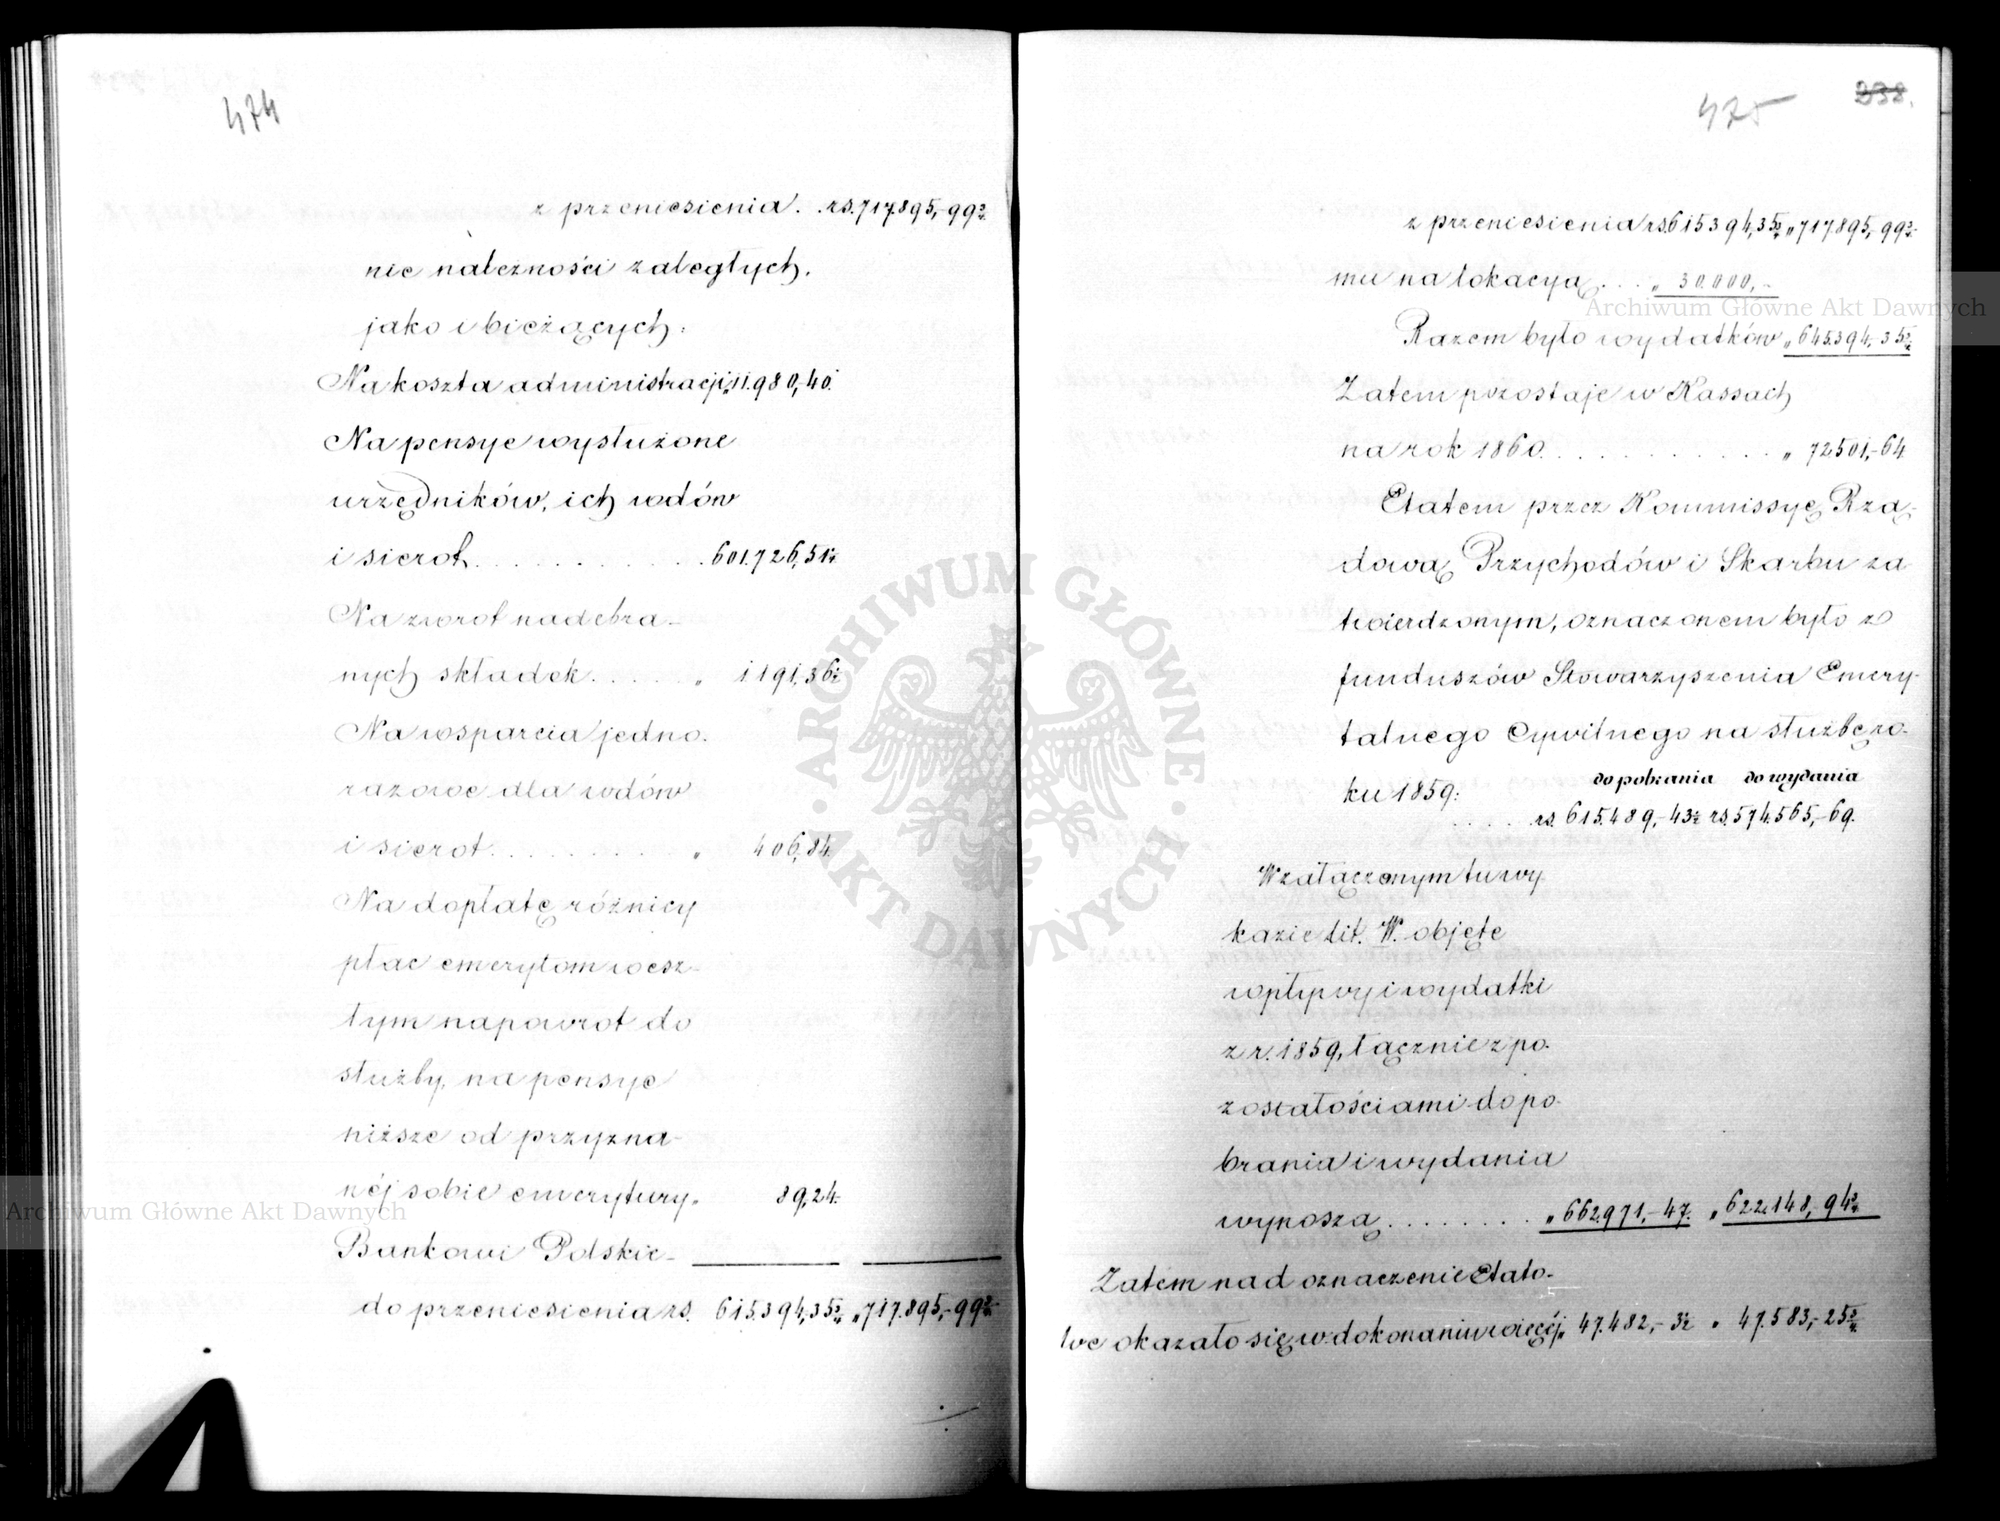 474
z przeniesienia . . rs. 717.895,-99¾
nie należności zaległych,
jako i bieżących:
Na koszta administracji „ 11.980,-40.
Na pensye wysłużone
urzędników, ich wdów
i sierot . . . . . . . . . . 601.726,51½
Na zwrot nadebra-
nych składek . . . . . „ 1191,36½
Na wsparcia jedno-
razowe dla wdów
i sierot . . . . . . . . . . „ 406,84.
Na dopłatę różnicy
płac emerytom wesz-
łym napowrot do
służby, na pensye
niższe od przyzna-
néj sobie emerytury „ 89,24.
Bankowi Polskie-
do przeniesienia rs. 615.394,35¾ „ 717.895,-99¾
475
238.
z przeniesienia rs. 615394,35¾ „ 717.895,-99¾
mu na lokacyą . . . „ 30.000,-
Razem było wydatków „ 645.394,-35¾
Zatem pozostaje w Kassach
na rok 1860 . . . . . . . . . . . . „ 72501,-64
Etatem przez Kommissyę Rzą-
dową Przychodów i Skarbu za
twierdzonym, oznaczonem było z
funduszów Stowarzyszenia Emery-
talnego Cywilnego na służbę ro-
do pobrania do wydania
ku 1859:
. . . . . rs. 615.489,-43½ rs. 574.565,-69.
W załączonym tu wy
kazie lit. W. objęte
wpływy i wydatki
z r. 1859, łącznie z po-
zostałościami do po-
brania i wydania
wynoszą . . . . . . . . „ 662.971,-47. „ 622.148,-94¾
Zatem nad oznaczenie Etato-
we okazało się w dokonaniu więcéj „ 47.482,-3½ „ 47.583,-25¾
Archiwum Główne Akt Dawnych
Archiwum Główne Akt Dawnych
ARCHIWUM GŁÓWNE · AKT DAWNYCH ·